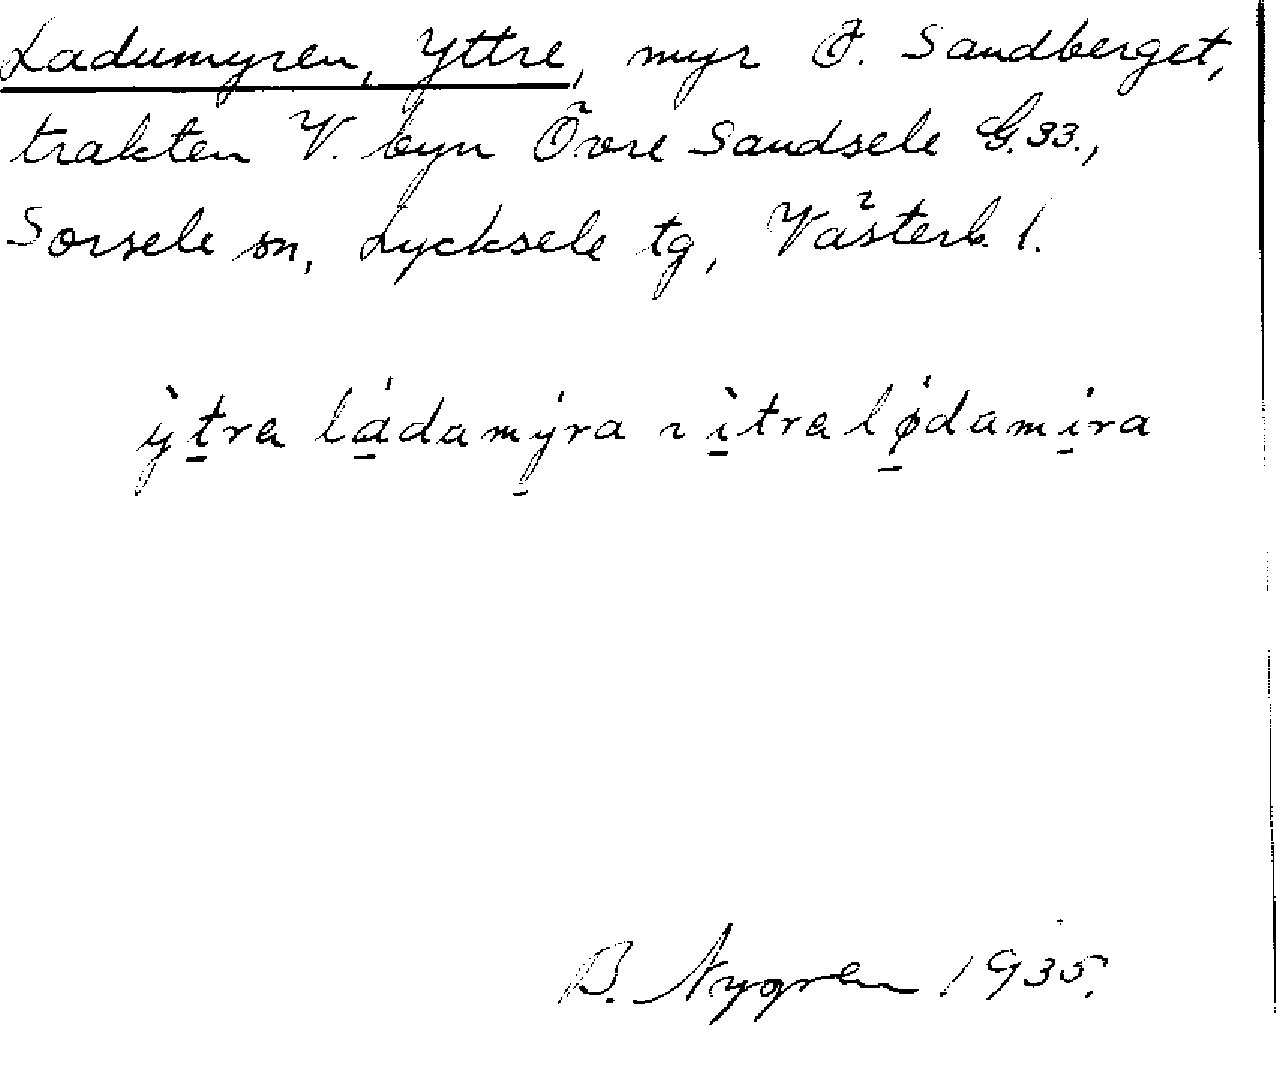 Ladumyren, Yttre, myr Ö. Sandberget,
trakten V. byn Övre Sandsele G.33.,
Sorsele sn, Lycksele tg, Västerb. l.
ỳt̲ra lá̲damý̲ra ~ ì̲tra lǿ̲damí̲ra
B. Nygren 1935.